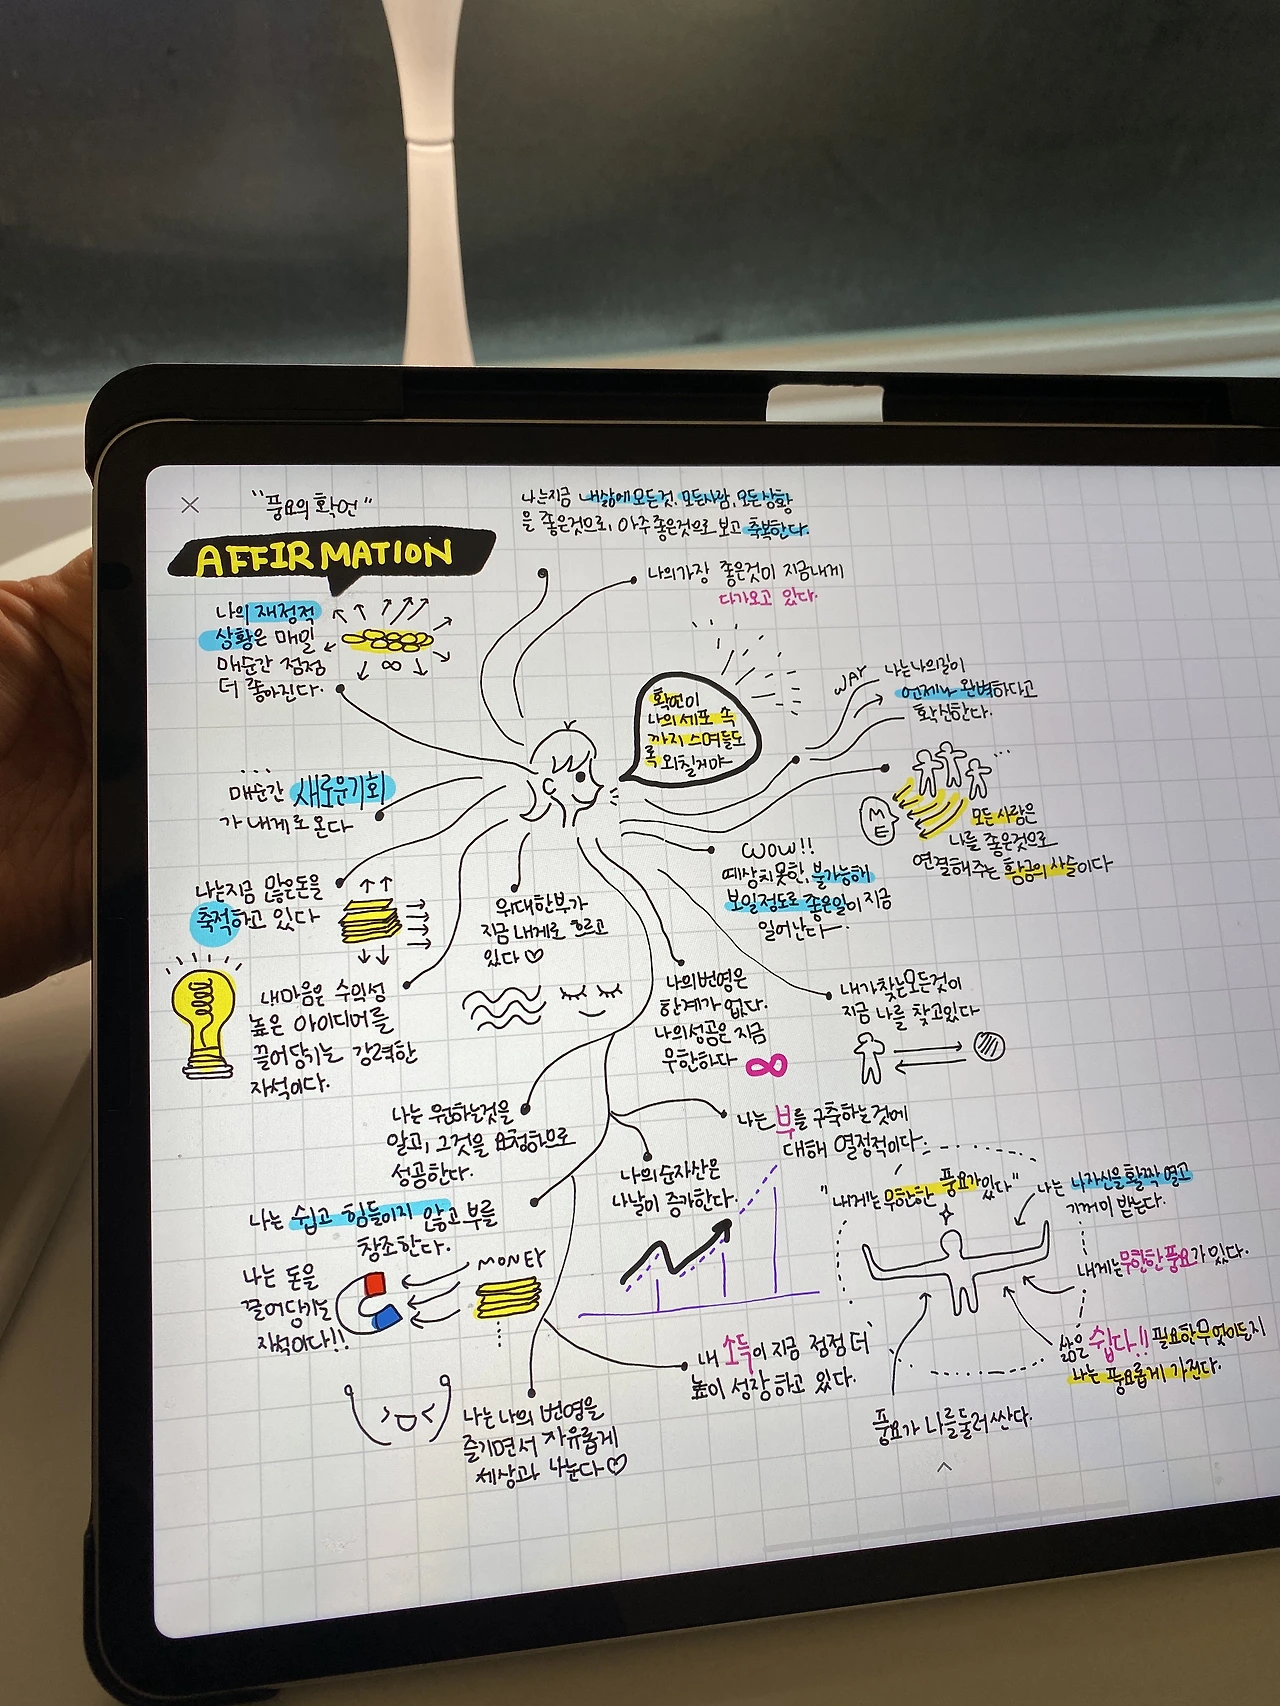 "풍요의 확언"
AFFIRMATION
나는지금 내삶에모든것, 모든사람, 모든상황
을 좋은것으로, 아주좋은것으로 보고 축복한다.
나의가장 좋은것이 지금내게
다가오고 있다.
나의 재정적
상황은 매일
매순간 점점
더 좋아진다.
∞
확언이
나의세포 속
까지 스며들도
록 외칠거야
WAY
나는나의길이
언제나 완벽하다고
확신한다.
...
매순간 새로운기회
가 내게로 온다
ME
모든사람은
나를 좋은것으로
연결해주는 황금의사슬이다
WOW!!
예상치못한, 불가능해
보일정도로 좋은일이 지금
일어난다
나는지금 많은돈을
축적하고 있다
위대한부가
지금 내게로 흐르고
있다♡
내마음은 수익성
높은 아이디어를
끌어당기는 강력한
자석이다.
나의번영은
한계가 없다.
나의성공은 지금
무한하다 ∞
내가찾는모든것이
지금 나를 찾고있다
나는 원하는것을
알고, 그것을 요청하므로
성공한다.
나는 부를 구축하는것에
대해 열정적이다.
나의순자산은
나날이 증가한다.
나는 쉽고 힘들이지 않고 부를
창조한다.
나는 돈을
끌어당기는
자석이다!!
MONEY
"내게는무한한 풍요가있다"
나는 나자신을활짝 열고
기꺼이 받는다.
내게는무한한풍요가있다.
삶은 쉽다!! 필요한무엇이든지
나는 풍요롭게 가진다.
풍요가 나를둘러싼다.
내 소득이 지금 점점 더
높이 성장하고 있다.
나는나의 번영을
즐기면서 자유롭게
세상과 나눈다♡